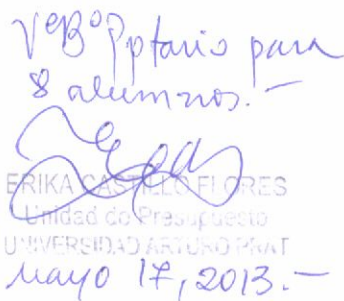 VºBº Pptario para
8 alumnos.-
ERIKA CASTILLO FLORES
Unidad de Presupuesto
UNIVERSIDAD ARTURO PRAT
Mayo 17, 2013.-